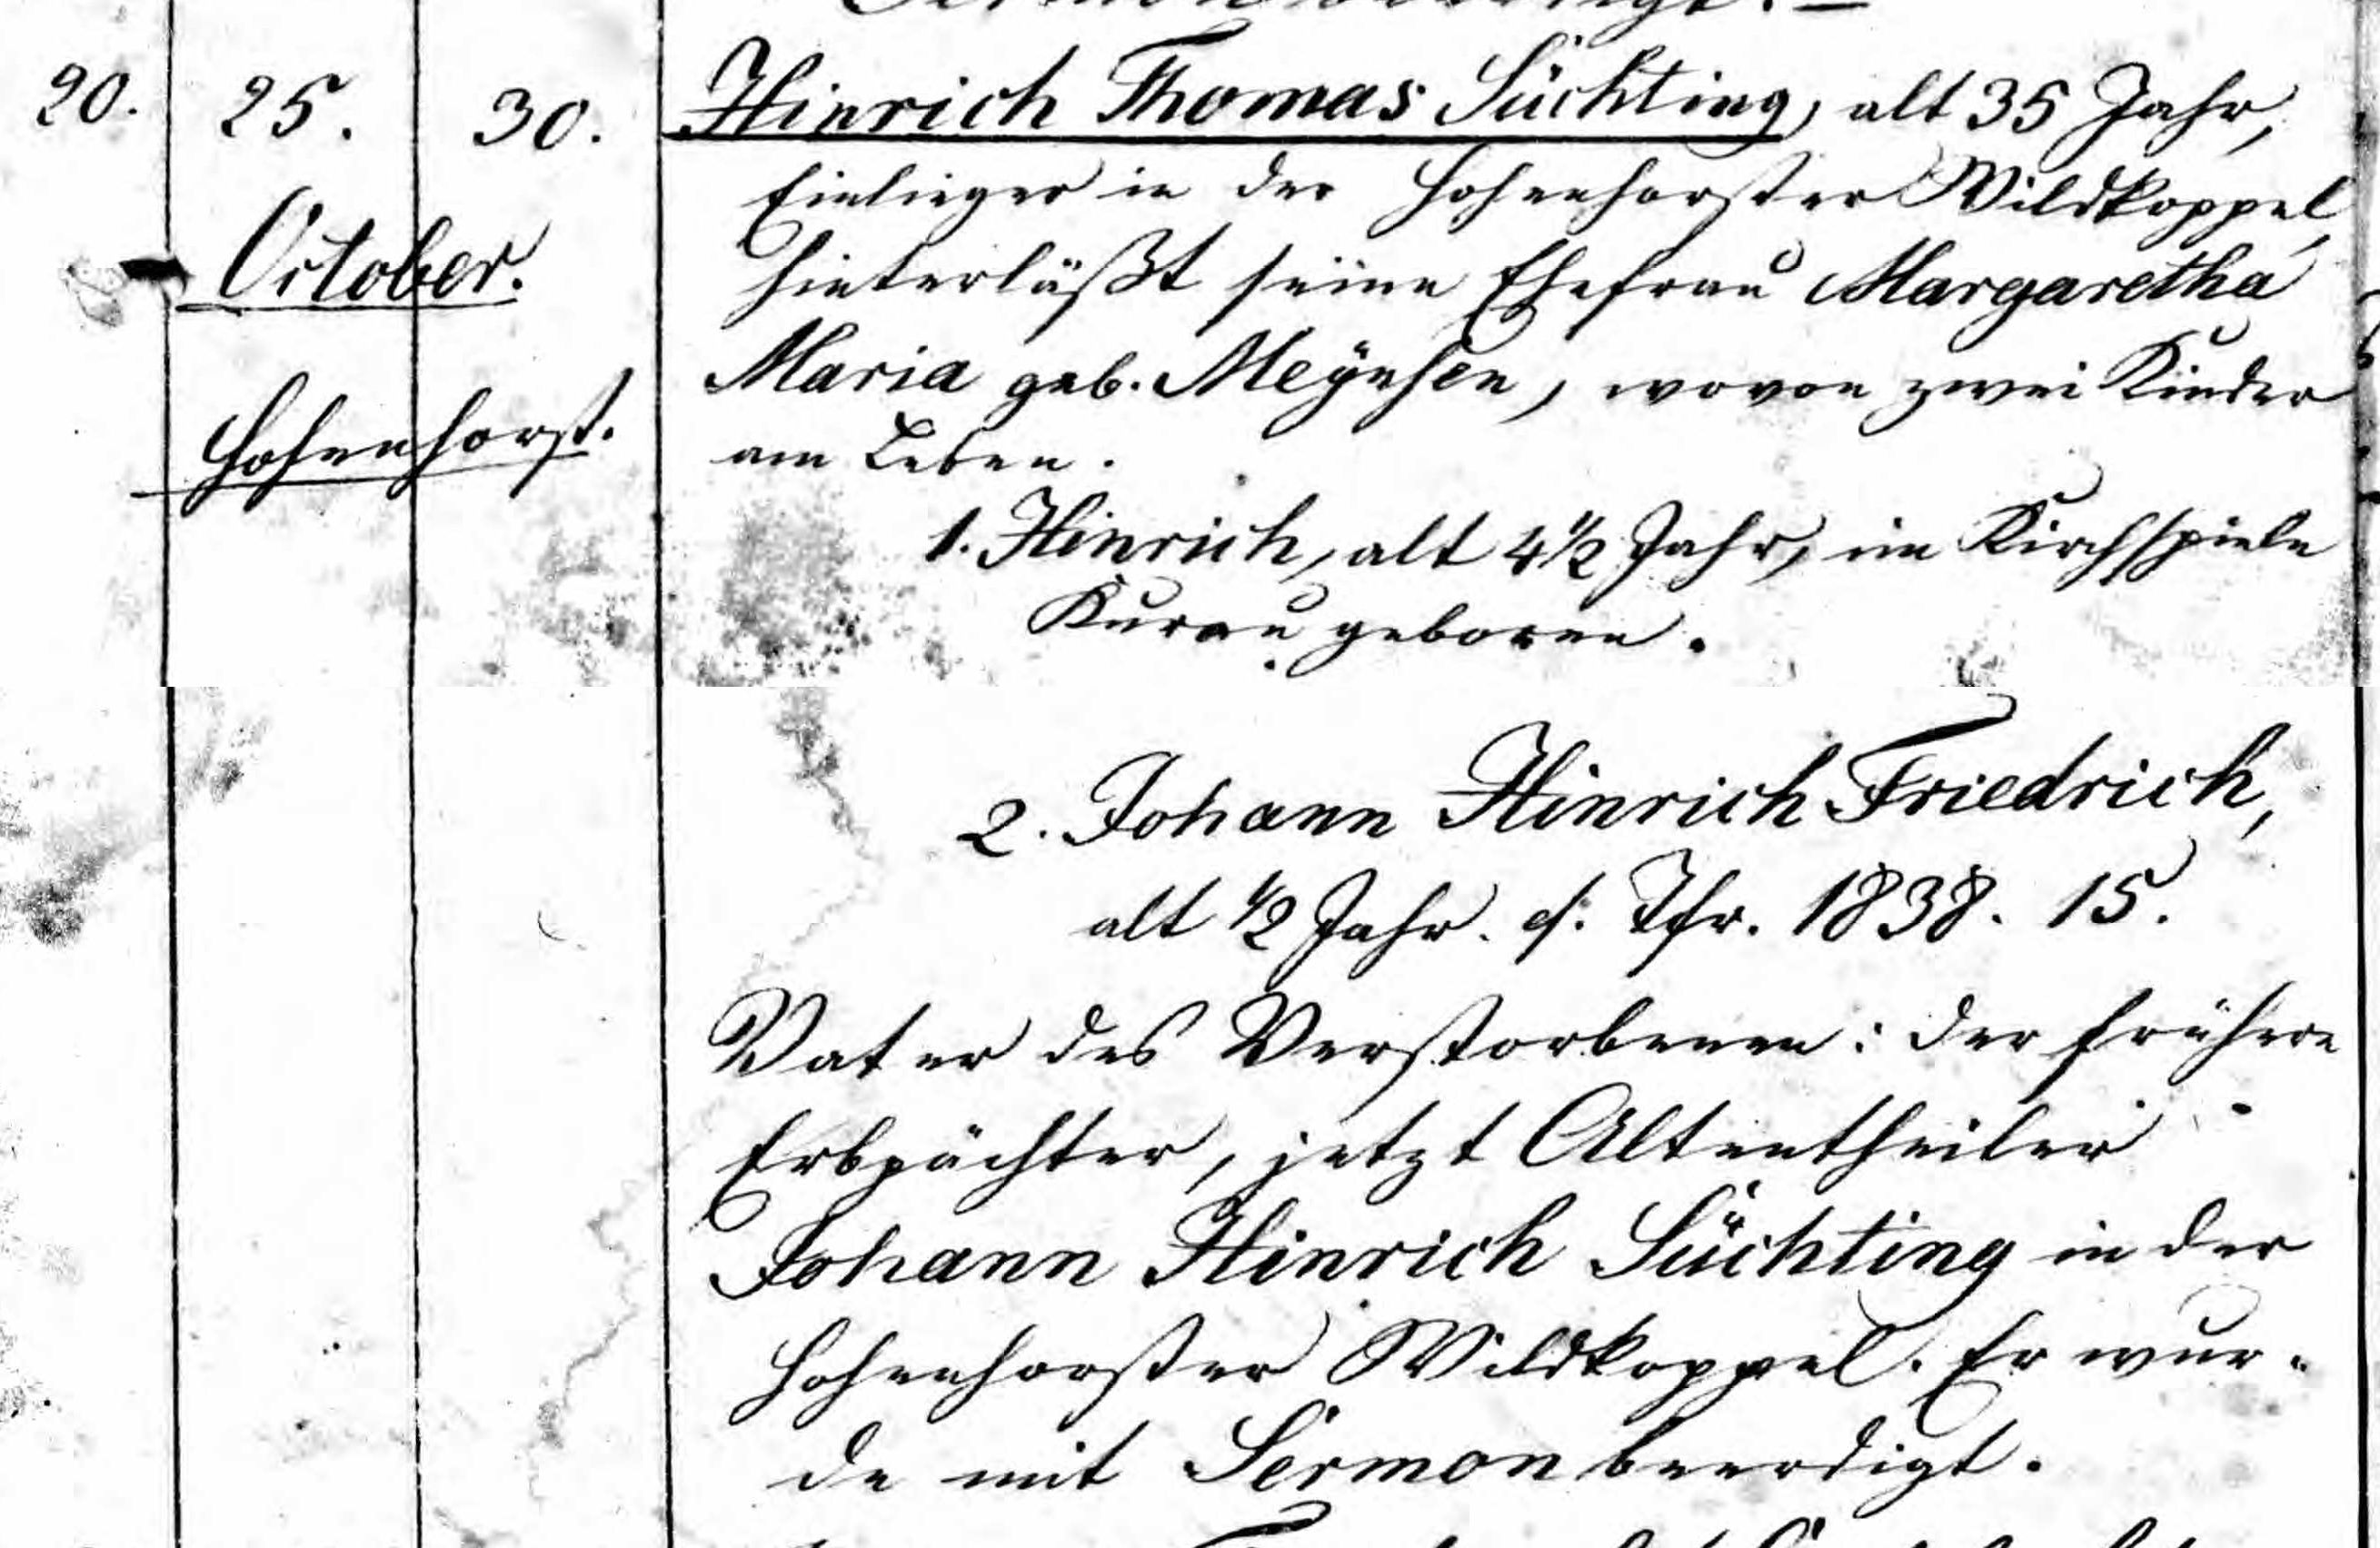 20. 25. 30. Hinrich Thomas Süchting, alt 35 Jahr,
Einlieger in der Hohenhorster Wildkoppel,
October. hinterläßt seine Ehefrau Margaretha
Maria geb. Meÿnsen, wovon zwei Kinder
Hohenhorst. am Leben.
1. Hinrich, alt 4 1/2 Jahr, im Kirchspiele
Kurau geboren.
2. Johann Hinrich Friedrich,
alt 1/2 Jahr. cf. Tfr. 1838. 15.
Vater des Verstorbenen: der frühere
Erbpächter, jetzt Altentheiler
Johann Hinrich Süchting in der
Hohenhorster Wildkoppel. Er wur-
de mit Sermon beerdigt.